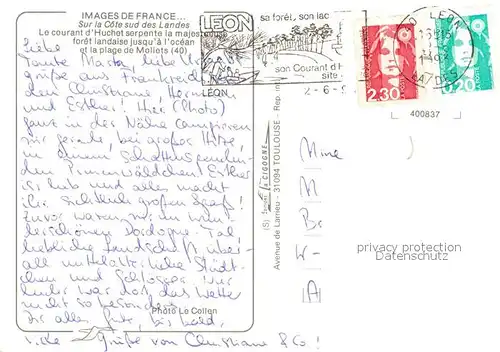 IMAGES DE FRANCE...
Sur la Côte sud des Landes
Le courant d'Huchet serpente la majestueuse
forêt landaise jusqu'à l'océan
et la plage de Moliets (40)
Liebe
Tante Marta, liebe
Grüße aus Frankreich
den Christiane, Hermann
und Esther! Hier (Photo)
ganz in der Nähe campieren
wir gerade, bei großer Hitze,
in einem Schattenspenden-
den Pinienwäldchen. Esther
ist lieb und alles macht
ihr sichtlich großen Spaß!
Zuvor waren wir im wun-
derschönen Dordogne-Tal
liebliche Landschaft über-
all mittelalterliche Städt-
chen und Schlösser. Nur
leider war dort das Wetter
nicht so besonders.
Dir alles Gute, bis bald,
Grüße von Christiane & Co!
Photo Le Collen
LEON
LÉON
sa forêt, son lac
son Courant d'H
site
2-6-9
LEON
LANDES
2,30
0,20
400837
(S)
LA CIGOGNE
Avenue de Larrieu - 31094 TOULOUSE - Rep. in
Mme
M
Br
W-
A
privacy protection
Datenschutz